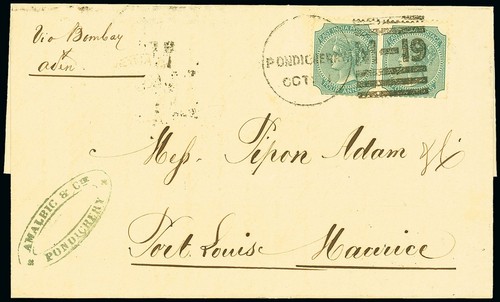 Via Bombay
&
Aden
PONDICHERRY
OCT
M-19
Mess. Pipon Adam & Co
Port Louis Maurice
* AMALRIC & Cie *
PONDICHERY